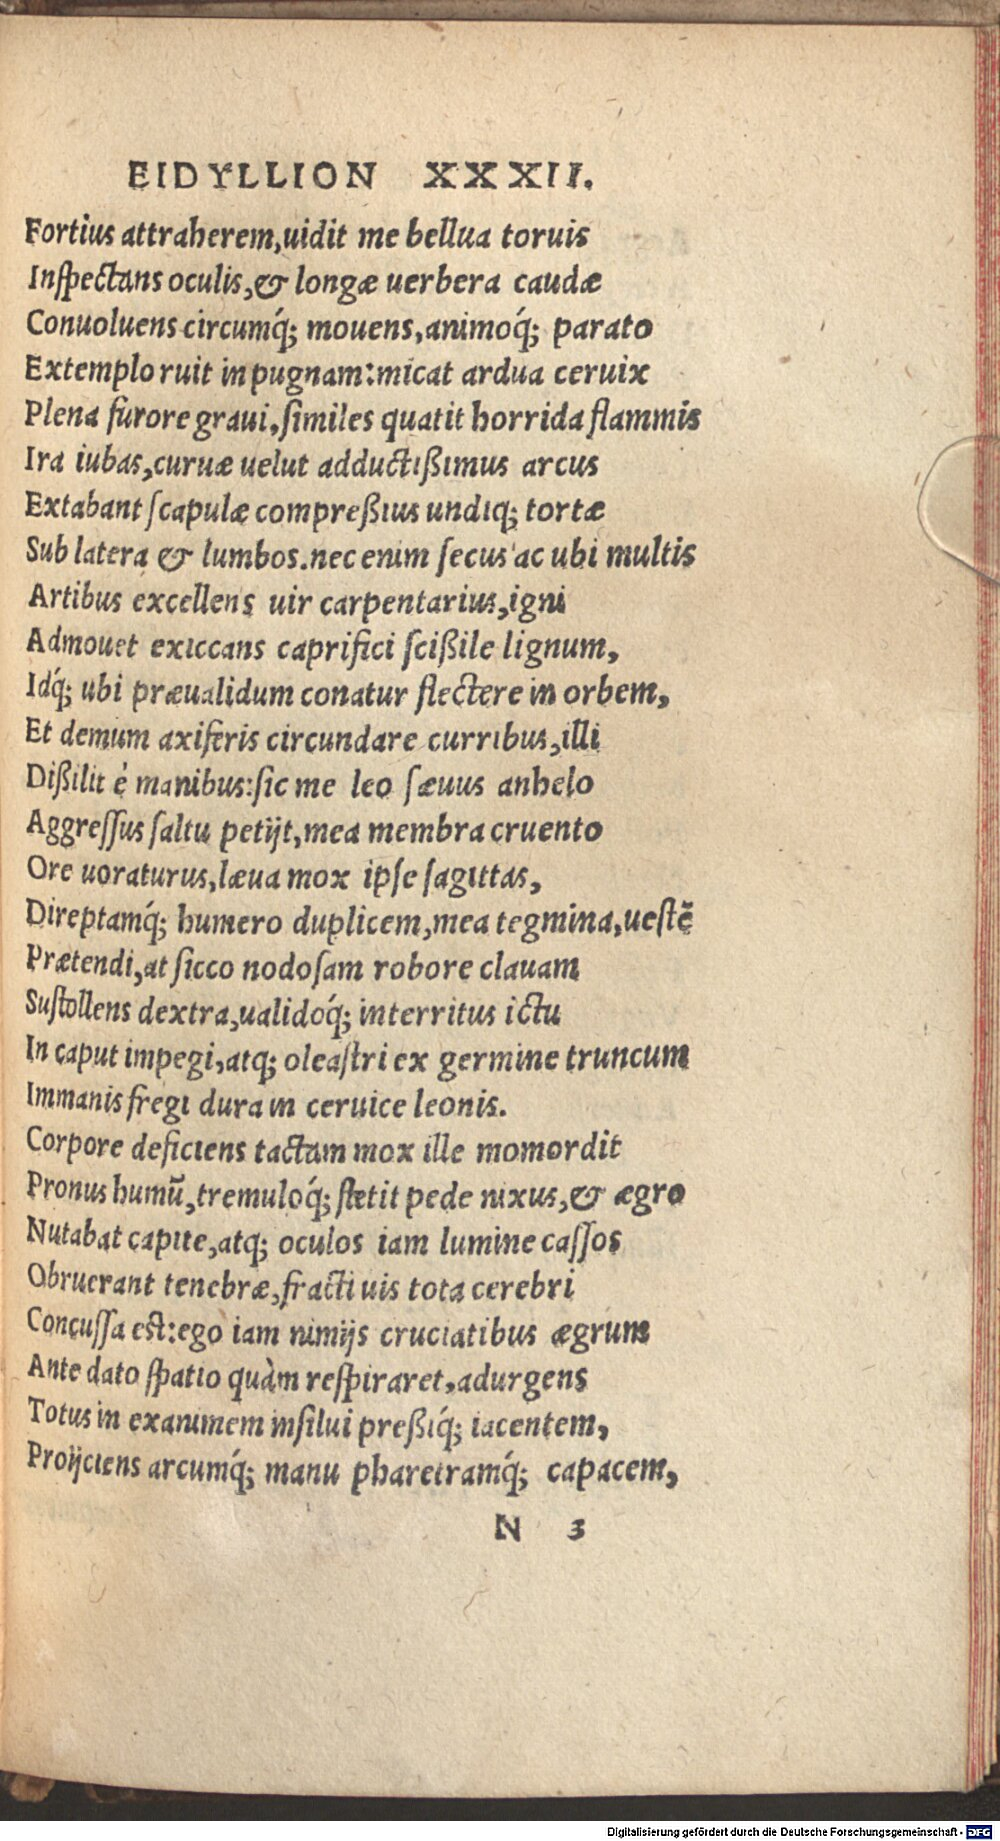 EIDYLLION XXXII.
Fortius attraherem,uidit me bellua toruis
Inſpectans oculis,& longæ uerbera caudæ
Conuoluens circumq́; mouens,animoq́; parato
Extemplo ruit in pugnam:micat ardua ceruix
Plena furore graui,ſimiles quatit horrida flammis
Ira iubas,curuæ uelut adductißimus arcus
Extabant ſcapulæ compreßius undiq; tortæ
Sub latera & lumbos.nec enim ſecus ac ubi multis
Artibus excellens uir carpentarius,igni
Admouet exiccans caprifici ſcißile lignum,
Idq́; ubi præualidum conatur flectere in orbem,
Et demum axiferis circundare curribus,illi
Dißilit è manibus:ſic me leo ſæuus anhelo
Aggreſſus ſaltu petijt,mea membra cruento
Ore uoraturus,læua mox ipſe ſagittas,
Direptamq́; humero duplicem,mea tegmina,ueſtē
Prætendi,at ſicco nodoſam robore clauam
Suſtollens dextra,ualidoq́; interritus ictu
In caput impegi,atq; oleaſtri ex germine truncum
Immanis fregi dura in ceruice leonis.
Corpore deficiens tactam mox ille momordit
Pronus humū,tremuloq́; ſtetit pede nixus,& ægro
Nutabat capite,atq; oculos iam lumine caſſos
Obruerant tenebræ,fracti uis tota cerebri
Concuſſa eſt:ego iam nimijs cruciatibus ægrum
Ante dato ſpatio quàm reſpiraret,adurgens
Totus in exanimem inſilui preßiq́; iacentem,
Proijciens arcumq́; manu pharetramq́; capacem,
N 3
Digitalisierung gefördert durch die Deutsche Forschungsgemeinschaft - DFG